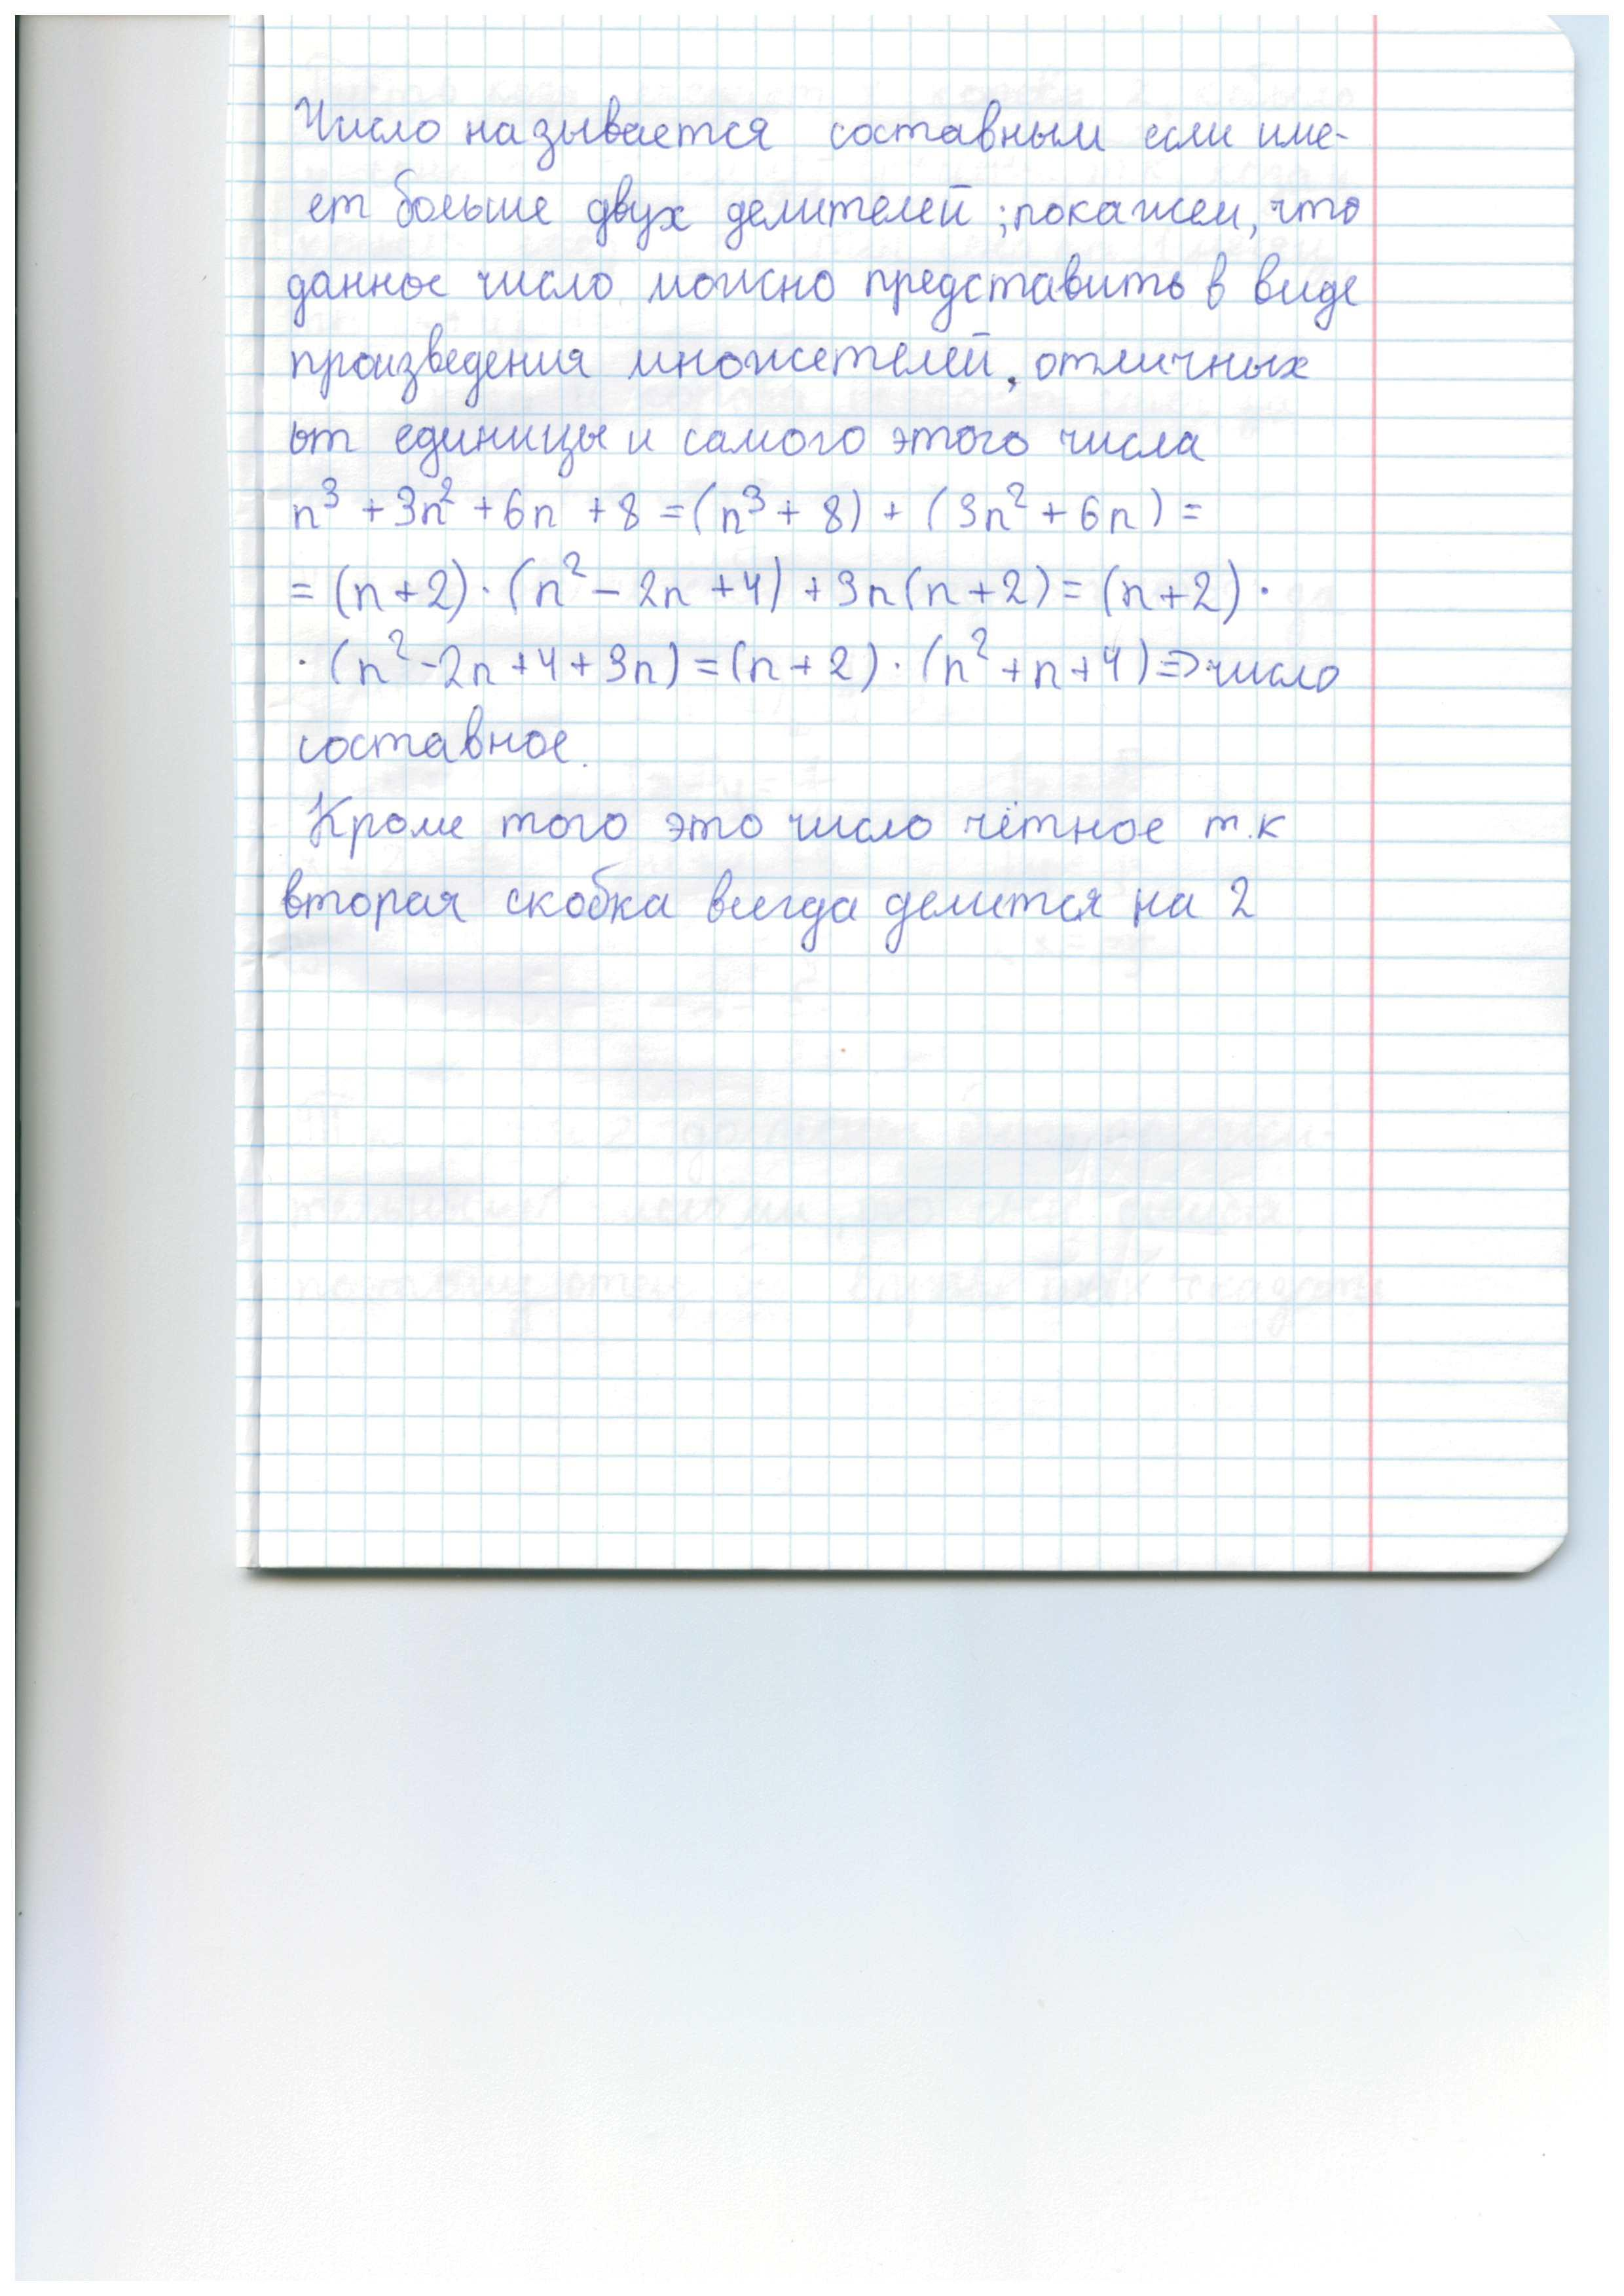 Число называется составным если име-
ет больше двух делителей; покажем, что
данное число можно представить в виде
произведения множетелей, отличных
от единицы и самого этого числа
n³ + 3n² + 6n + 8 = (n³ + 8) + (3n² + 6n) =
= (n+2) · (n² - 2n + 4) + 3n(n+2) = (n+2) ·
· (n² - 2n + 4 + 3n) = (n+2) · (n² + n + 4) => число
составное.
Кроме того это число чётное т.к
вторая скобка всегда делится на 2